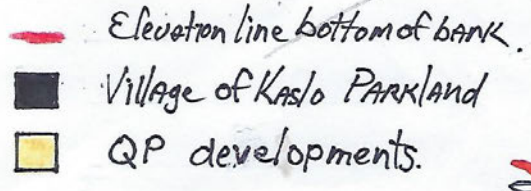 Elevation line bottom of bank.
Village of Kaslo Parkland
QP developments.